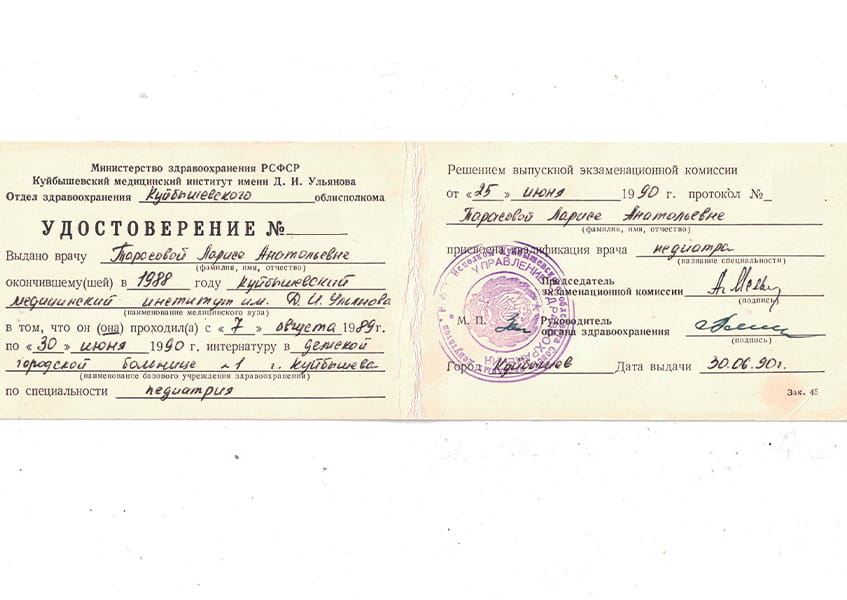 Министерство здравоохранения РСФСР
Куйбышевский медицинский институт имени Д. И. Ульянова
Отдел здравоохранения Куйбышевского облисполкома
УДОСТОВЕРЕНИЕ №
Выдано врачу Тарасовой Ларисе Анатольевне
(фамилия, имя, отчество)
окончившему(шей) в 1988 году Куйбышевский
медицинский институт им. Д. И. Ульянова
(наименование медицинского вуза)
в том, что он (она) проходил(а) с «7» августа 1989г.
по «30» июня 1990 г. интернатуру в детской
городской больнице №1 г. Куйбышева
(наименование базового учреждения здравоохранения)
по специальности педиатрия
Решением выпускной экзаменационной комиссии
от «25» июня 1990 г. протокол №
Тарасовой Ларисе Анатольевне
(фамилия, имя, отчество)
присвоена квалификация врача педиатра
(название специальности)
Председатель
экзаменационной комиссии
(подпись)
М. П.
Руководитель
органа здравоохранения
(подпись)
Город Куйбышев Дата выдачи 30.06.90г.
Зак. 45
УПРАВЛЕНИЕ ЗДРАВООХРАНЕНИЯ